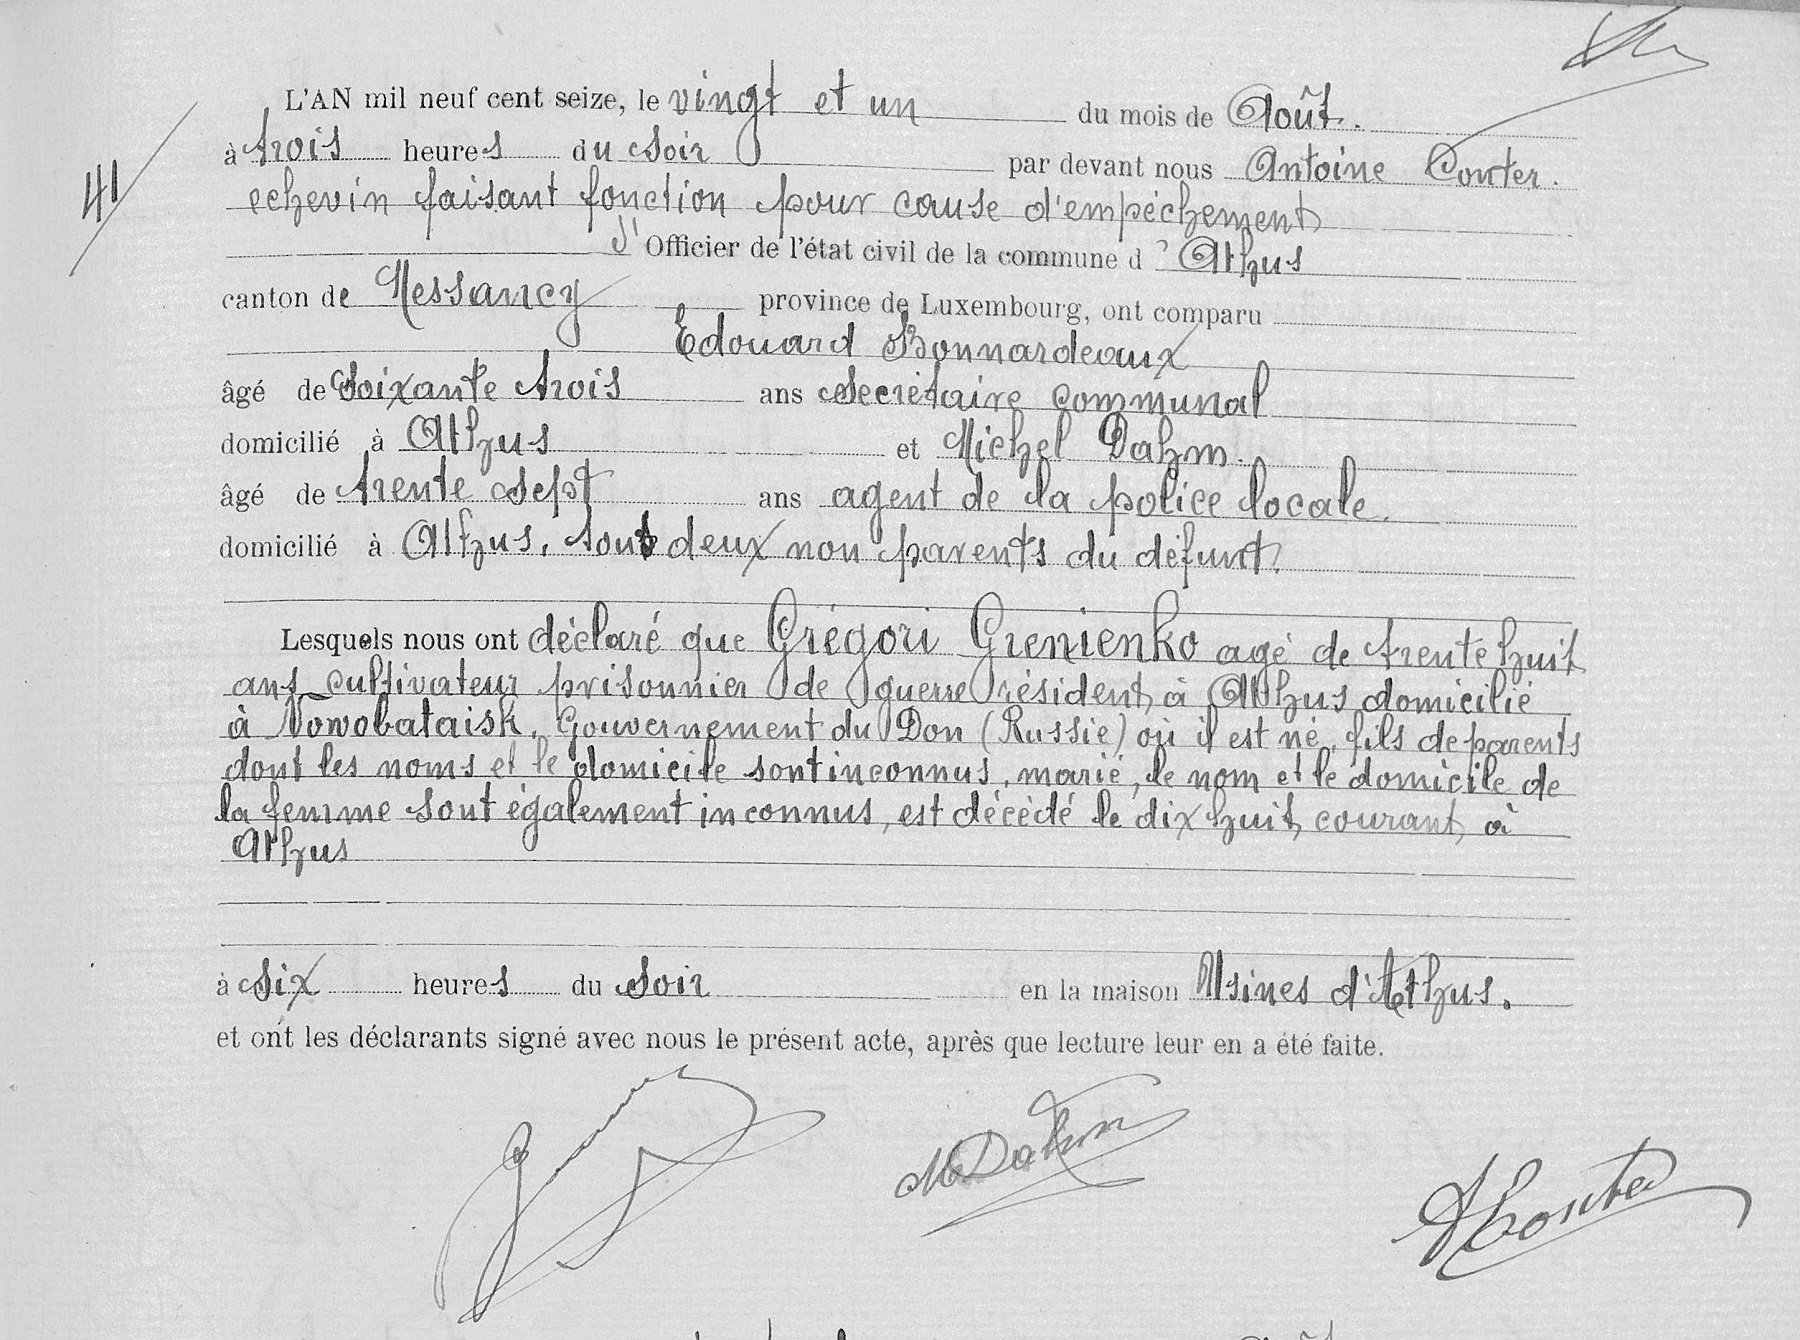 L'AN mil neuf cent seize, le vingt et un du mois de Août.
à trois heures du soir par devant nous Antoine Conter.
41
echevin faisant fonction pour cause d'empéchement
d'Officier de l'état civil de la commune d'Athus
canton de Messancy province de Luxembourg, ont comparu
Edouard Bonnardeaux
âgé de soixante trois ans secrétaire communal
domicilié à Athus et Michel Dahm.
âgé de trente sept ans agent de la police locale.
domicilié à Athus, tous deux non parents du défunt.
Lesquels nous ont déclaré que Grégori Grenienko agé de trente huit
ans cultivateur prisonnier de guerre résident à Athus domicilié
à Nowobataisk, Gouvernement du Don (Russie) où il est né, fils de parents
dont les noms et le domicile sont inconnus, marié, le nom et le domicile de
la femme sont également inconnus, est décédé le dix huit courant à
Athus
à six heures du soir en la maison Usines d'Athus.
et ont les déclarants signé avec nous le présent acte, après que lecture leur en a été faite.
M Dahm
A Conter